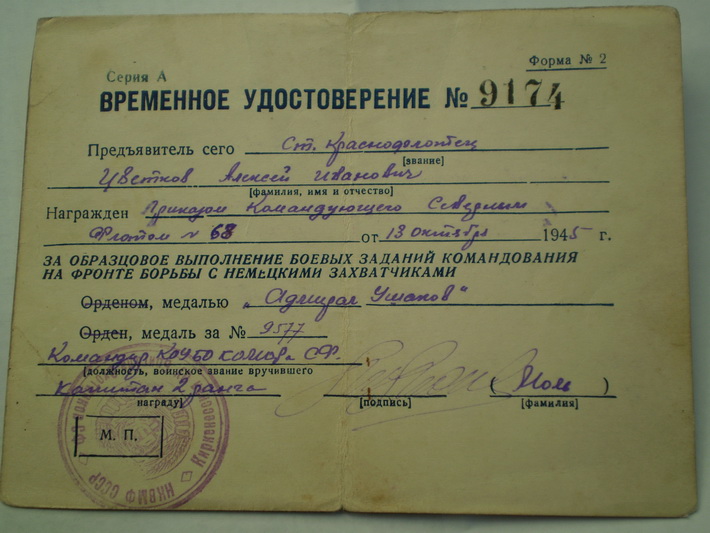 Серия А
Форма № 2
ВРЕМЕННОЕ УДОСТОВЕРЕНИЕ № 9174
Предъявитель сего Ст. Краснофлотец
[звание]
Цветков Алексей Иванович
[фамилия, имя и отчество]
Награжден Приказом Командующего Северным
Флотом № 68 от 13 октября 1945 г.
ЗА ОБРАЗЦОВОЕ ВЫПОЛНЕНИЕ БОЕВЫХ ЗАДАНИЙ КОМАНДОВАНИЯ
НА ФРОНТЕ БОРЬБЫ С НЕМЕЦКИМИ ЗАХВАТЧИКАМИ
Орденом, медалью „Адмирал Ушаков"
Орден, медаль за № 9577
Командир СФ.
[должность, воинское звание вручившего
Капитан 2 ранга (Моль)
награду] [подпись] [фамилия]
М. П.
НКВМФ СССР